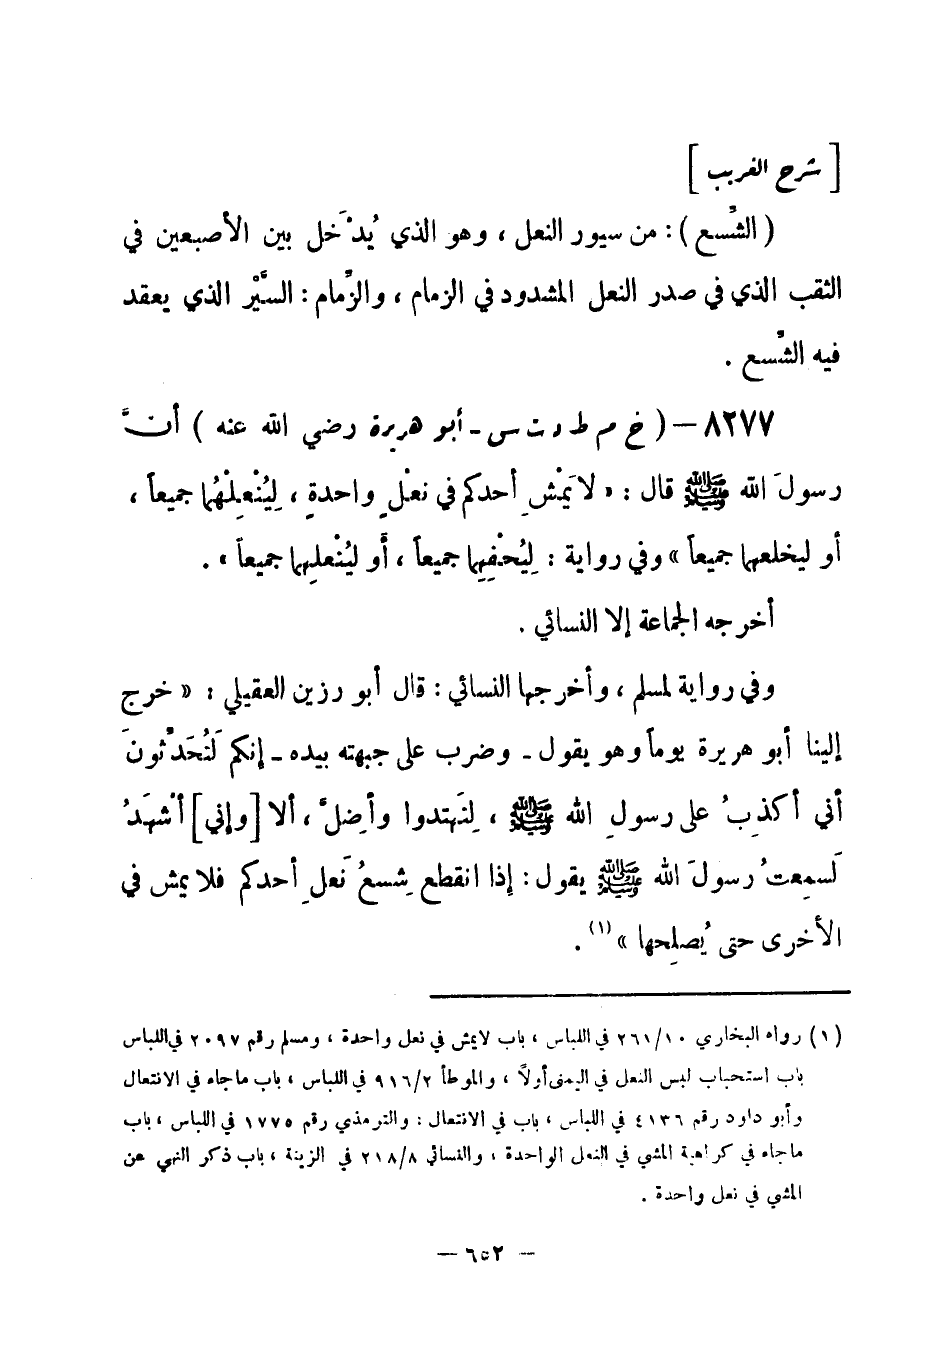 [ شرح الغريب ]
( الشِّسع ) : من سيور النعل ، وهو الذي يُدْخَل بين الأصبعين في
الثقب الذي في صدر النعل المشدود في الزمام ، والزِّمام : السَّيْر الذي يعقد
فيه الشِّسع .
٨٢٧٧ – ( خ م ط د ت س - أبو هريرة رضي الله عنه ) أنَّ
رسولَ الله ﷺ قال : « لا يَمْشِ أحدكم في نعْلٍ واحدةٍ ، لِيُنْعِلْهُما جميعاً ،
أو ليخلعهما جميعاً » وفي رواية : لِيُحْفِهِما جميعاً ، أَو ليُنْعلِهما جميعاً » .
أخرجه الجماعة إلا النسائي .
وفي رواية لمسلم ، وأخرجها النسائي : قال أبو رزين العقيلي : « خرج
إلينا أبو هريرة يوماً وهو يقول - وضرب على جبهته بيده - إنكم لَتُحَدِّثونَ
أني أكذِبُ على رسولِ الله ﷺ ، لِتَهتدوا وأضِلَّ ، ألا [وإني] أشْهَدُ
لَسمِعتُ رسولَ الله ﷺ يقول : إذا انقطع شِسعُ نَعلِ أحدكم فلا يمش في
الأخرى حتى يُصلِحها » (١) .
(١) رواه البخاري ٢٦١/١٠ في اللباس ، باب لا يمش في نعل واحدة ، ومسلم رقم ٢٠٩٧ في اللباس
باب استحباب لبس النعل في اليمنى أولاً ، والموطأ ٩١٦/٢ في اللباس ، باب ما جاء في الانتعال
وأبو داود رقم ٤١٣٦ في اللباس ، باب في الانتعال : والترمذي رقم ١٧٧٥ في اللباس ، باب
ما جاء في كراهية المشي في النعل الواحدة ، والنسائي ٢١٨/٨ في الزينة ، باب ذكر النهي عن
المشي في نعل واحدة .
– ٦٥٢ –